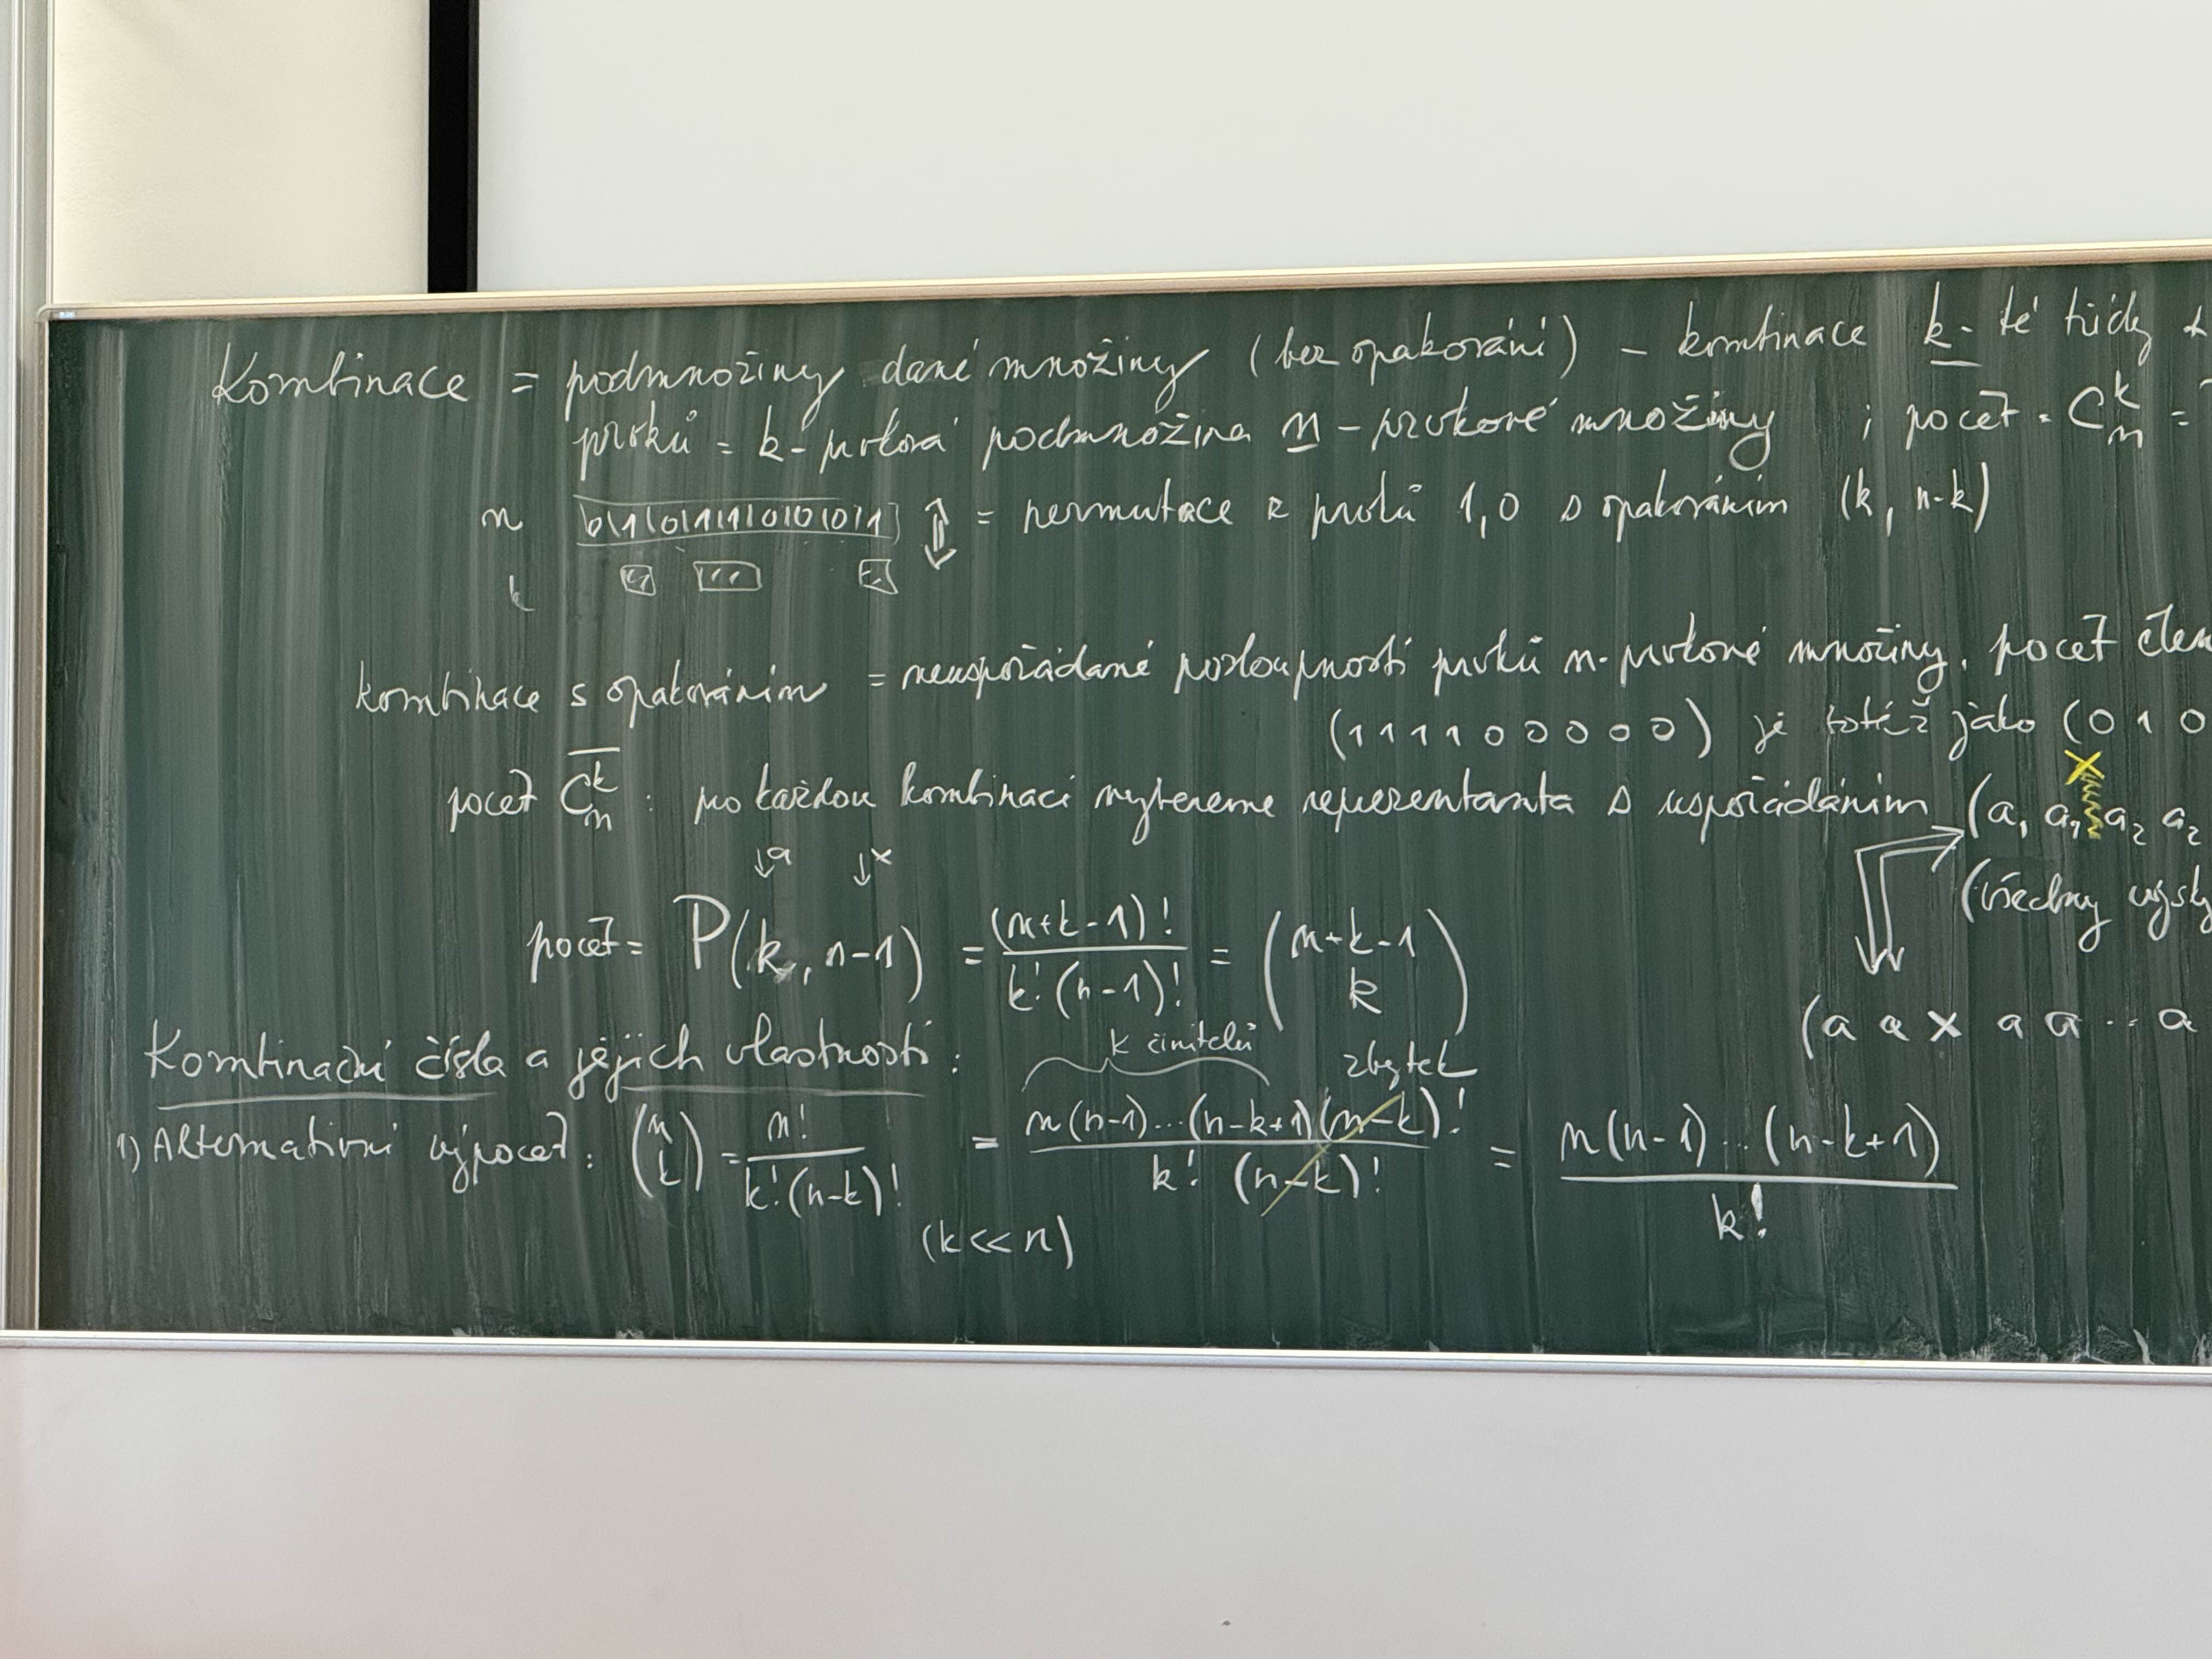 Kombinace = podmnožiny dané množiny (bez opakování) – kombinace k-té třídy z
prvků = k-prvková podmnožina n-prvkové množiny ; počet = C_n^k =
n 0|1|0|1|1|0|0|0|1 ⇕ = permutace z prvků 1,0 s opakováním (k, n-k)
k
kombinace s opakováním = neuspořádané posloupnosti prvků n-prvkové množiny, počet
(1 1 1 1 0 0 0 0 0) je totéž jako (0 1 0
počet C̅_n^k : pro každou kombinaci vybereme reprezentanta s uspořádáním (a₁ a₁ a₂ a₂
x
↓a ↓x
(všechny
počet = P(k, n-1) = (n+k-1)! / k!(n-1)! = (n+k-1 k)
(a a x a a ... a
Kombinační čísla a jejich vlastnosti :
k činitelů zbytek
1) Alternativní výpočet : (n k) = n! / k!(n-k)! = n(n-1)...(n-k+1)(n-k)! / k! (n-k)! = n(n-1)...(n-k+1) / k!
(k<<n)